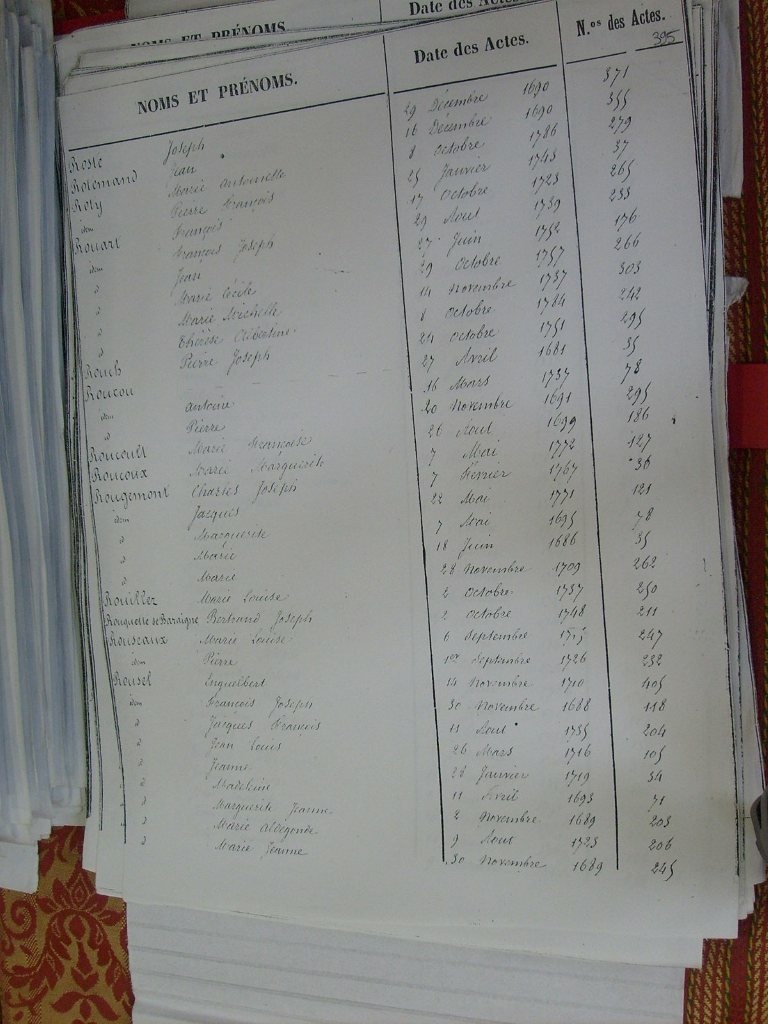 NOMS ET PRÉNOMS. Date des Actes.
NOMS ET PRÉNOMS. Date des Actes. N.os des Actes.
395
Rosle Joseph 29 Décembre 1690 371
Rotemand Jean 16 Décembre 1690 355
Roty Marie Antoinette 8 Octobre 1786 279
idem Pierre François 25 Janvier 1743 37
Rouart François 17 Octobre 1723 265
idem François Joseph 29 Aout 1739 233
d Jean 27 Juin 1752 176
d Marie Cécile 29 Octobre 1757 266
d Marie Michelle 14 Novembre 1737 303
d Thérèse Albertine 8 Octobre 1784 242
Rouch Pierre Joseph 21 Octobre 1751 295
Roucou 27 Avril 1681 35
idem Antoine 16 Mars 1737 78
d Pierre 20 Novembre 1691 295
Roucoult Marie Françoise 26 Aout 1699 186
Roucoux Marie Marguerite 7 Mai 1772 127
Rougemont Charles Joseph 7 Février 1767 36
idem Jacques 22 Mai 1771 121
d Marguerite 7 Mai 1695 78
d Marie 18 Juin 1686 35
d Marie 28 Novembre 1709 262
Rouillez Marie Louise 2 Octobre 1737 250
Rouquette de Baraigne Bertrand Joseph 2 Octobre 1748 211
Rouseaux Marie Louise 6 Septembre 1715 247
idem Pierre 1er Septembre 1726 232
Rousel Enguelbert 14 Novembre 1710 405
idem François Joseph 30 Novembre 1688 118
d Jacques François 11 Aout 1735 204
d Jean Louis 26 Mars 1716 105
d Jeanne 28 Janvier 1719 34
d Madeleine 11 Avril 1693 71
d Marguerite Jeanne 2 Novembre 1689 203
d Marie Aldegonde 9 Aout 1723 206
d Marie Jeanne 30 Novembre 1689 245